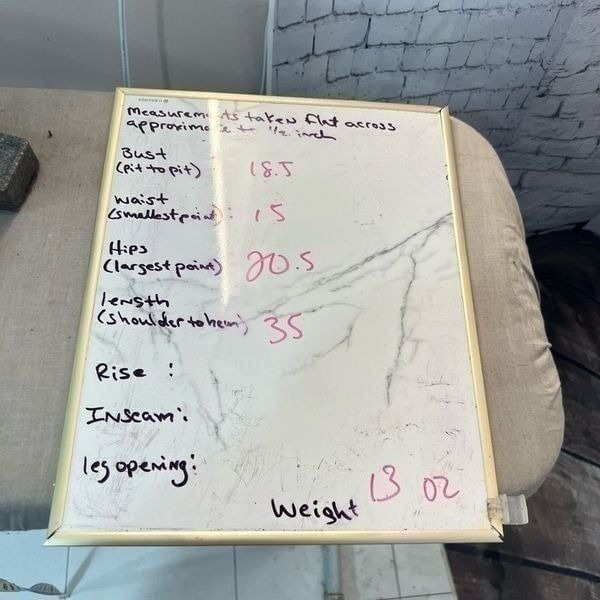 Measurements taken flat across
approximate to 1/2 inch
Bust
(pit to pit) 18.5
waist
(smallest point): 15
Hips
(largest point) 20.5
length
(shoulder to hem) 35
Rise :
Inseam:
leg opening:
Weight 13 oz